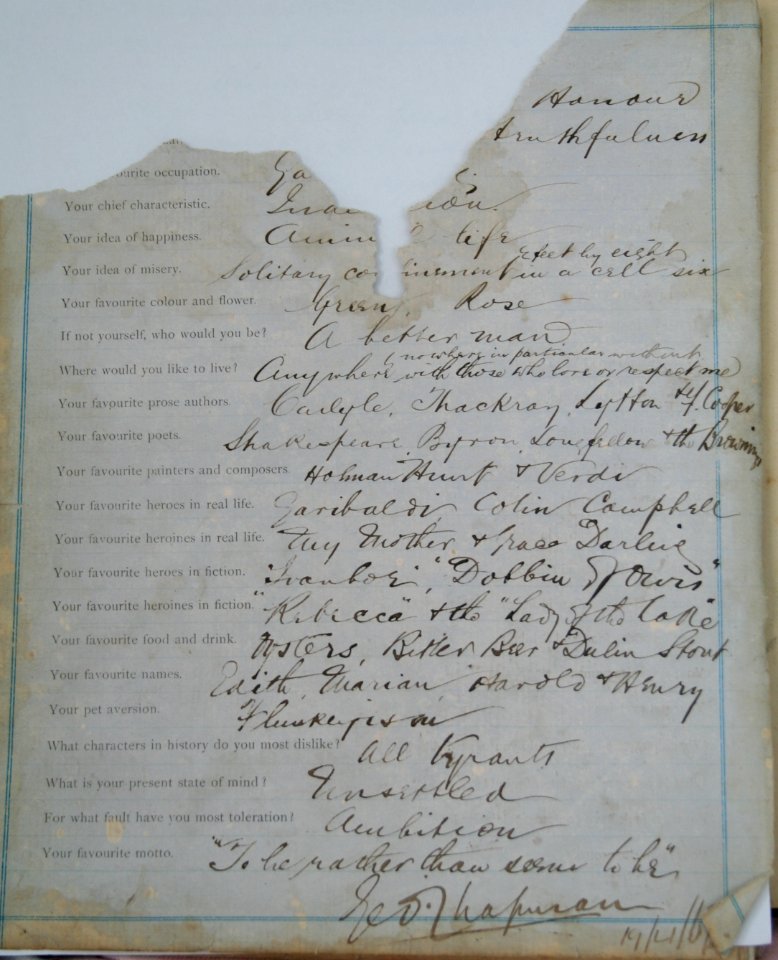 Honour
truthfulness
ourite occupation.
Your chief characteristic.
Your idea of happiness. life
Your idea of misery. Solitary confinement in a cell six feet by eight
Your favourite colour and flower. Green, Rose
If not yourself, who would you be? A better man
nowhere in particular without
Where would you like to live? Anywhere with those who love or respect me
Your favourite prose authors. Carlyle, Thackray, Lytton & F. Cooper
Your favourite poets. Shakespeare, Byron, Longfellow & the Brownings
Your favourite painters and composers. Holman Hunt & Verdi
Your favourite heroes in real life. Garibaldi Colin Campbell
Your favourite heroines in real life. My Mother & Grace Darling
Your favourite heroes in fiction. "Ivanhoe", "Dobbin
Your favourite heroines in fiction. "Rebecca" & the "Lady of the Lake"
Your favourite food and drink. Oysters, Bitter Beer & Dulin Stout
Your favourite names. Edith, Marian, Harold & Henry
Your pet aversion. Flunkeyism
What characters in history do you most dislike? All Tyrants
What is your present state of mind? Unsettled
For what fault have you most toleration? Ambition
Your favourite motto. "To be rather than seem to be"
Geo. Chapman